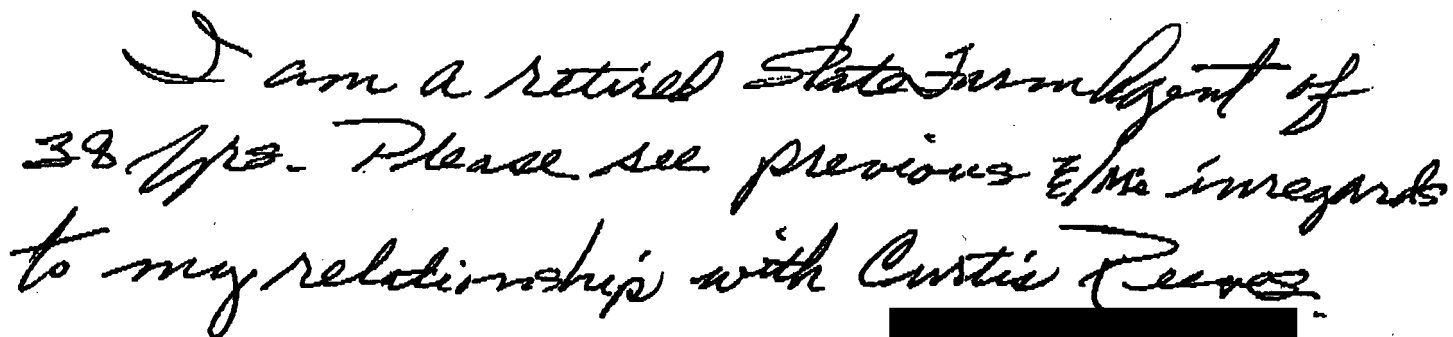 I am a retired State Farm Agent of
38 yrs. Please see previous E/Ms inregards
to my relationship with Curtis Reeves.